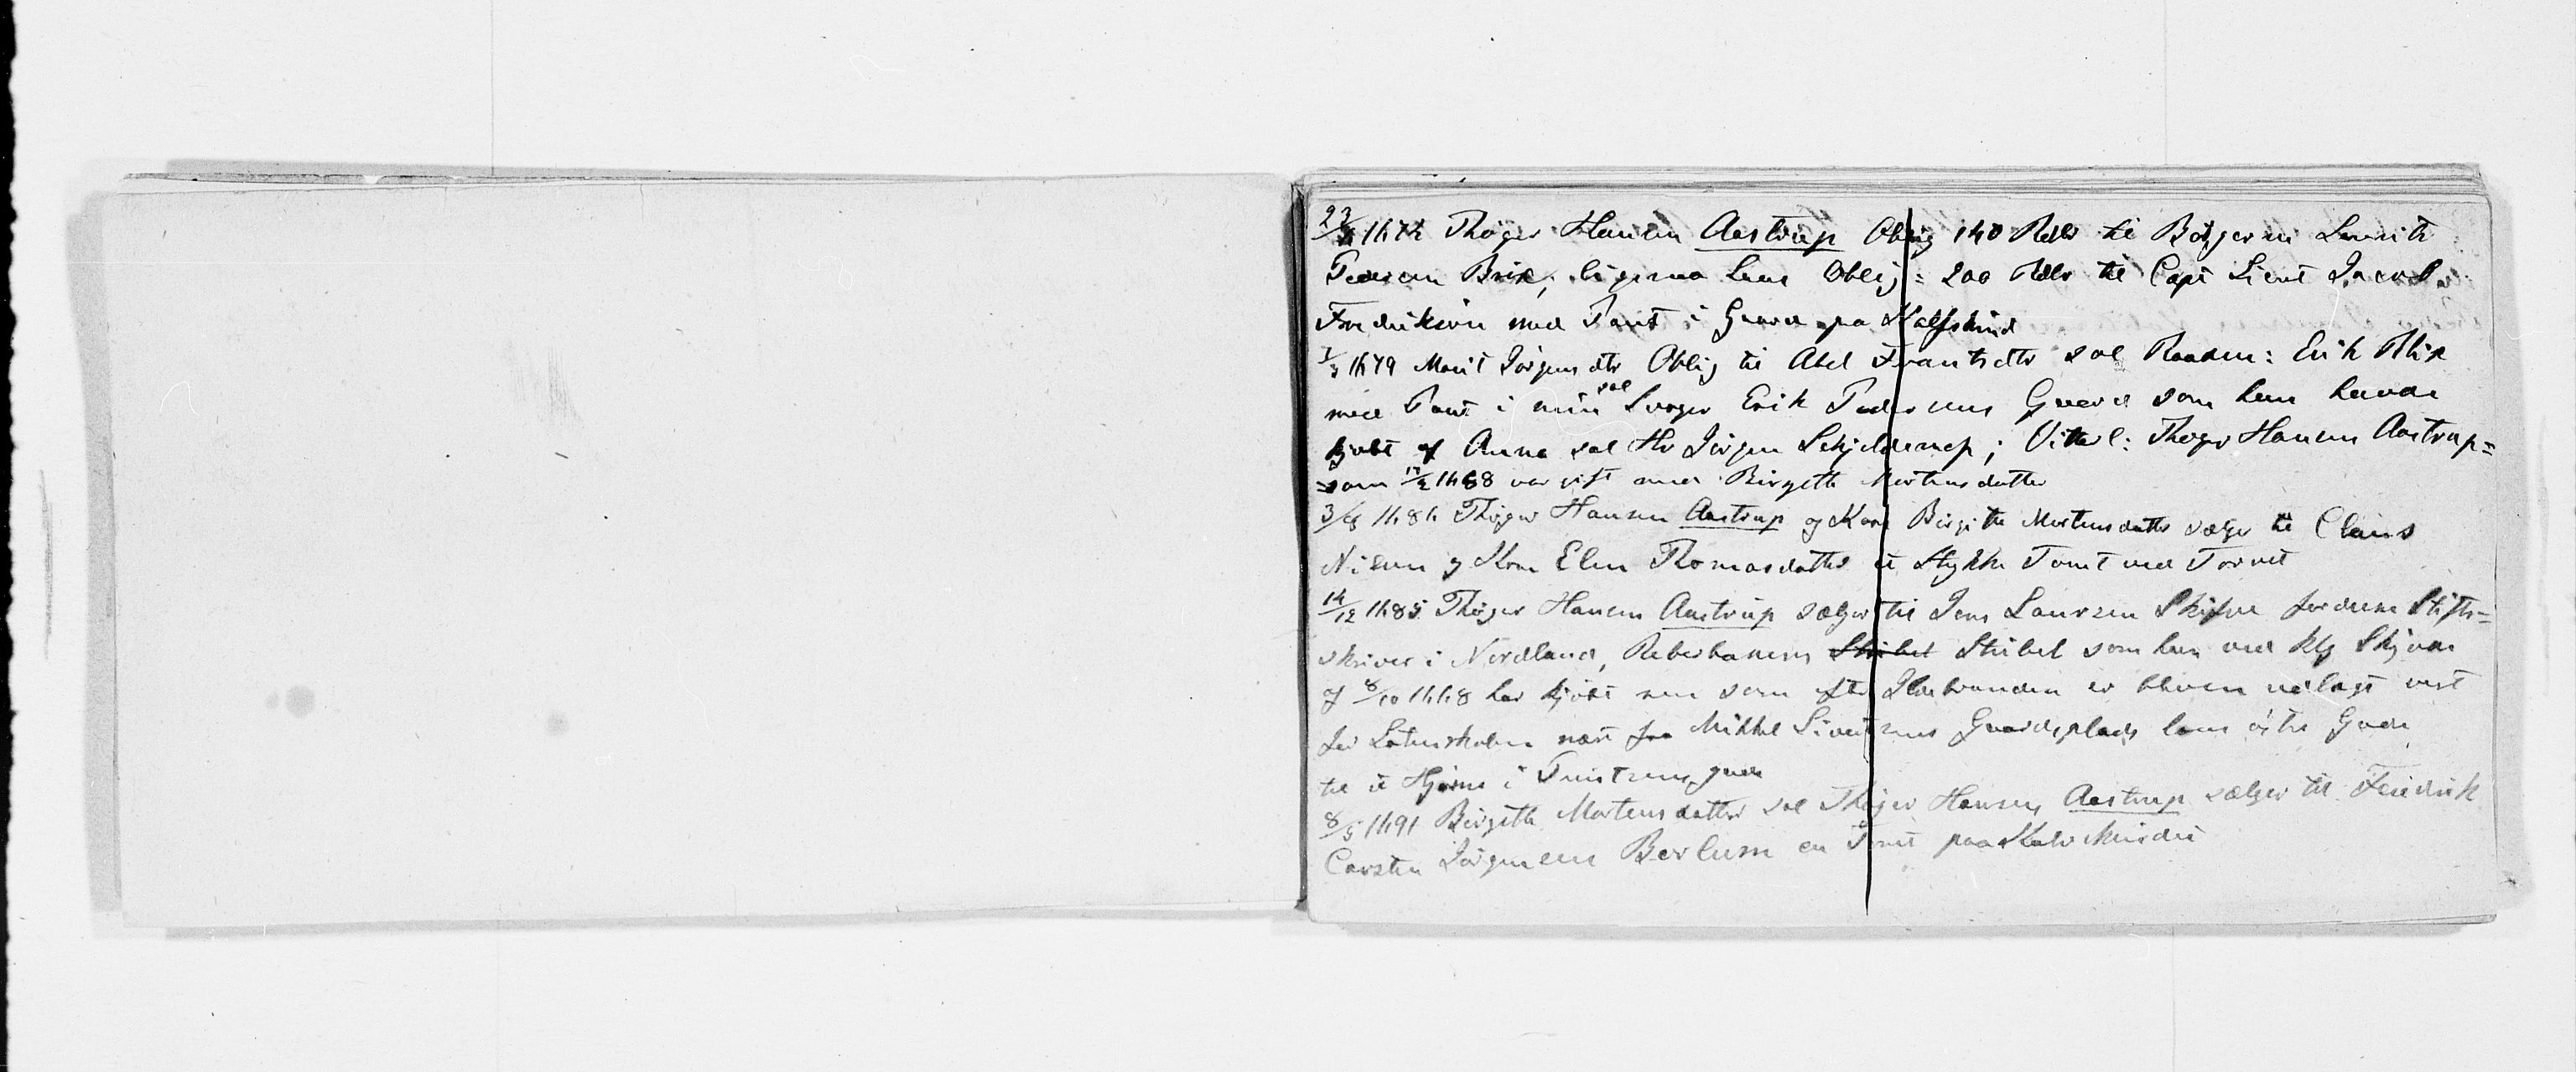 23/ 1672 Thøger Hansen Aastrup Oblig 140 Rdlr til Borgeren Laurits
Pedersen Brix, ligesaa hans Oblig: 200 Rdlr til Capt Lieut Jacob
Fredriksen med Pant i Gaard paa Kalfskind
1/3 1679 Marit Jørgensdtr Oblig til Abel Frantsdtr sal Raadm: Erik Blix
med Pant i min sal Svoger Erik Pedersens Gaard som han havde
kjøbt af Anna sal Hr Jørgen Schjelderup; Vitterl: Thøger Hansen Aastrup=
=som 17/2 1668 var gift med Birgitte Mortensdatter
3/ 1686 Thøger Hansen Aastrup og Kone Birgitte Mortensdatter sælger til Claus
Nilsen og Kone Elen Thomasdatter et Stykke Tomt ved Torvet
14/12 1685 Thøger Hansen Aastrup sælger til Jens Laursen fordum Stifts=
skriver i Nordland, Reberbanens Stribel Stribel som han ved Klg Skjøde
af 8/10 1668 har kjøbt men som efter Ildebranden er bleven udlagt vest
for Latinskolen næst fra Mikkel Sivertsens Gaardsplads langs østre Gade
til et Hjørne i gade
8/5 1691 Birgitte Mortensdatter sal Thøger Hansen Aastrup sælger til Feiedrik
Carsten Jørgensen Berlum en Tomt paa